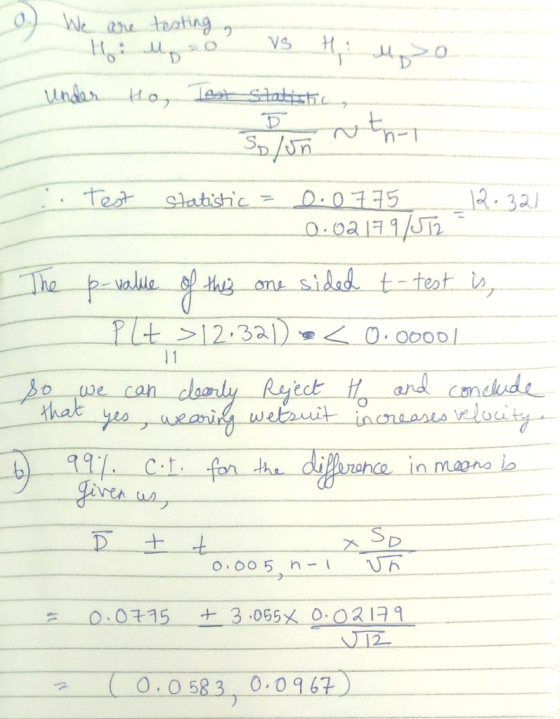 a) We are testing,
H₀: μ_D = 0 vs H₁: μ_D > 0
Under H₀, Test Statistic,
D̅ / (S_D/√n) ~ t_{n-1}
∴ Test statistic = 0.0775 / (0.02179/√12) = 12.321
The p-value of this one sided t-test is,
P(t > 12.321) < 0.00001
11
So we can clearly Reject H₀ and conclude
that yes, wearing wetsuit increases velocity.
b) 99% C.I. for the difference in means is
given as,
D̅ ± t_{0.005, n-1} × S_D/√n
= 0.0775 ± 3.055 × 0.02179/√12
= (0.0583, 0.0967)